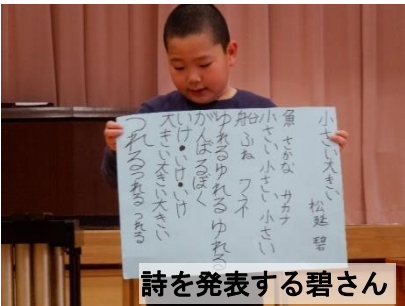 小さい大きい
松延 碧
魚 さかな サカナ
小さい 小さい 小さい
船 ふね フネ
ゆれる ゆれる ゆれる
がんばるぼく
いけ・いけ・いけ
大きい大きい大きい
つれる つれる つれる
詩を発表する碧さん